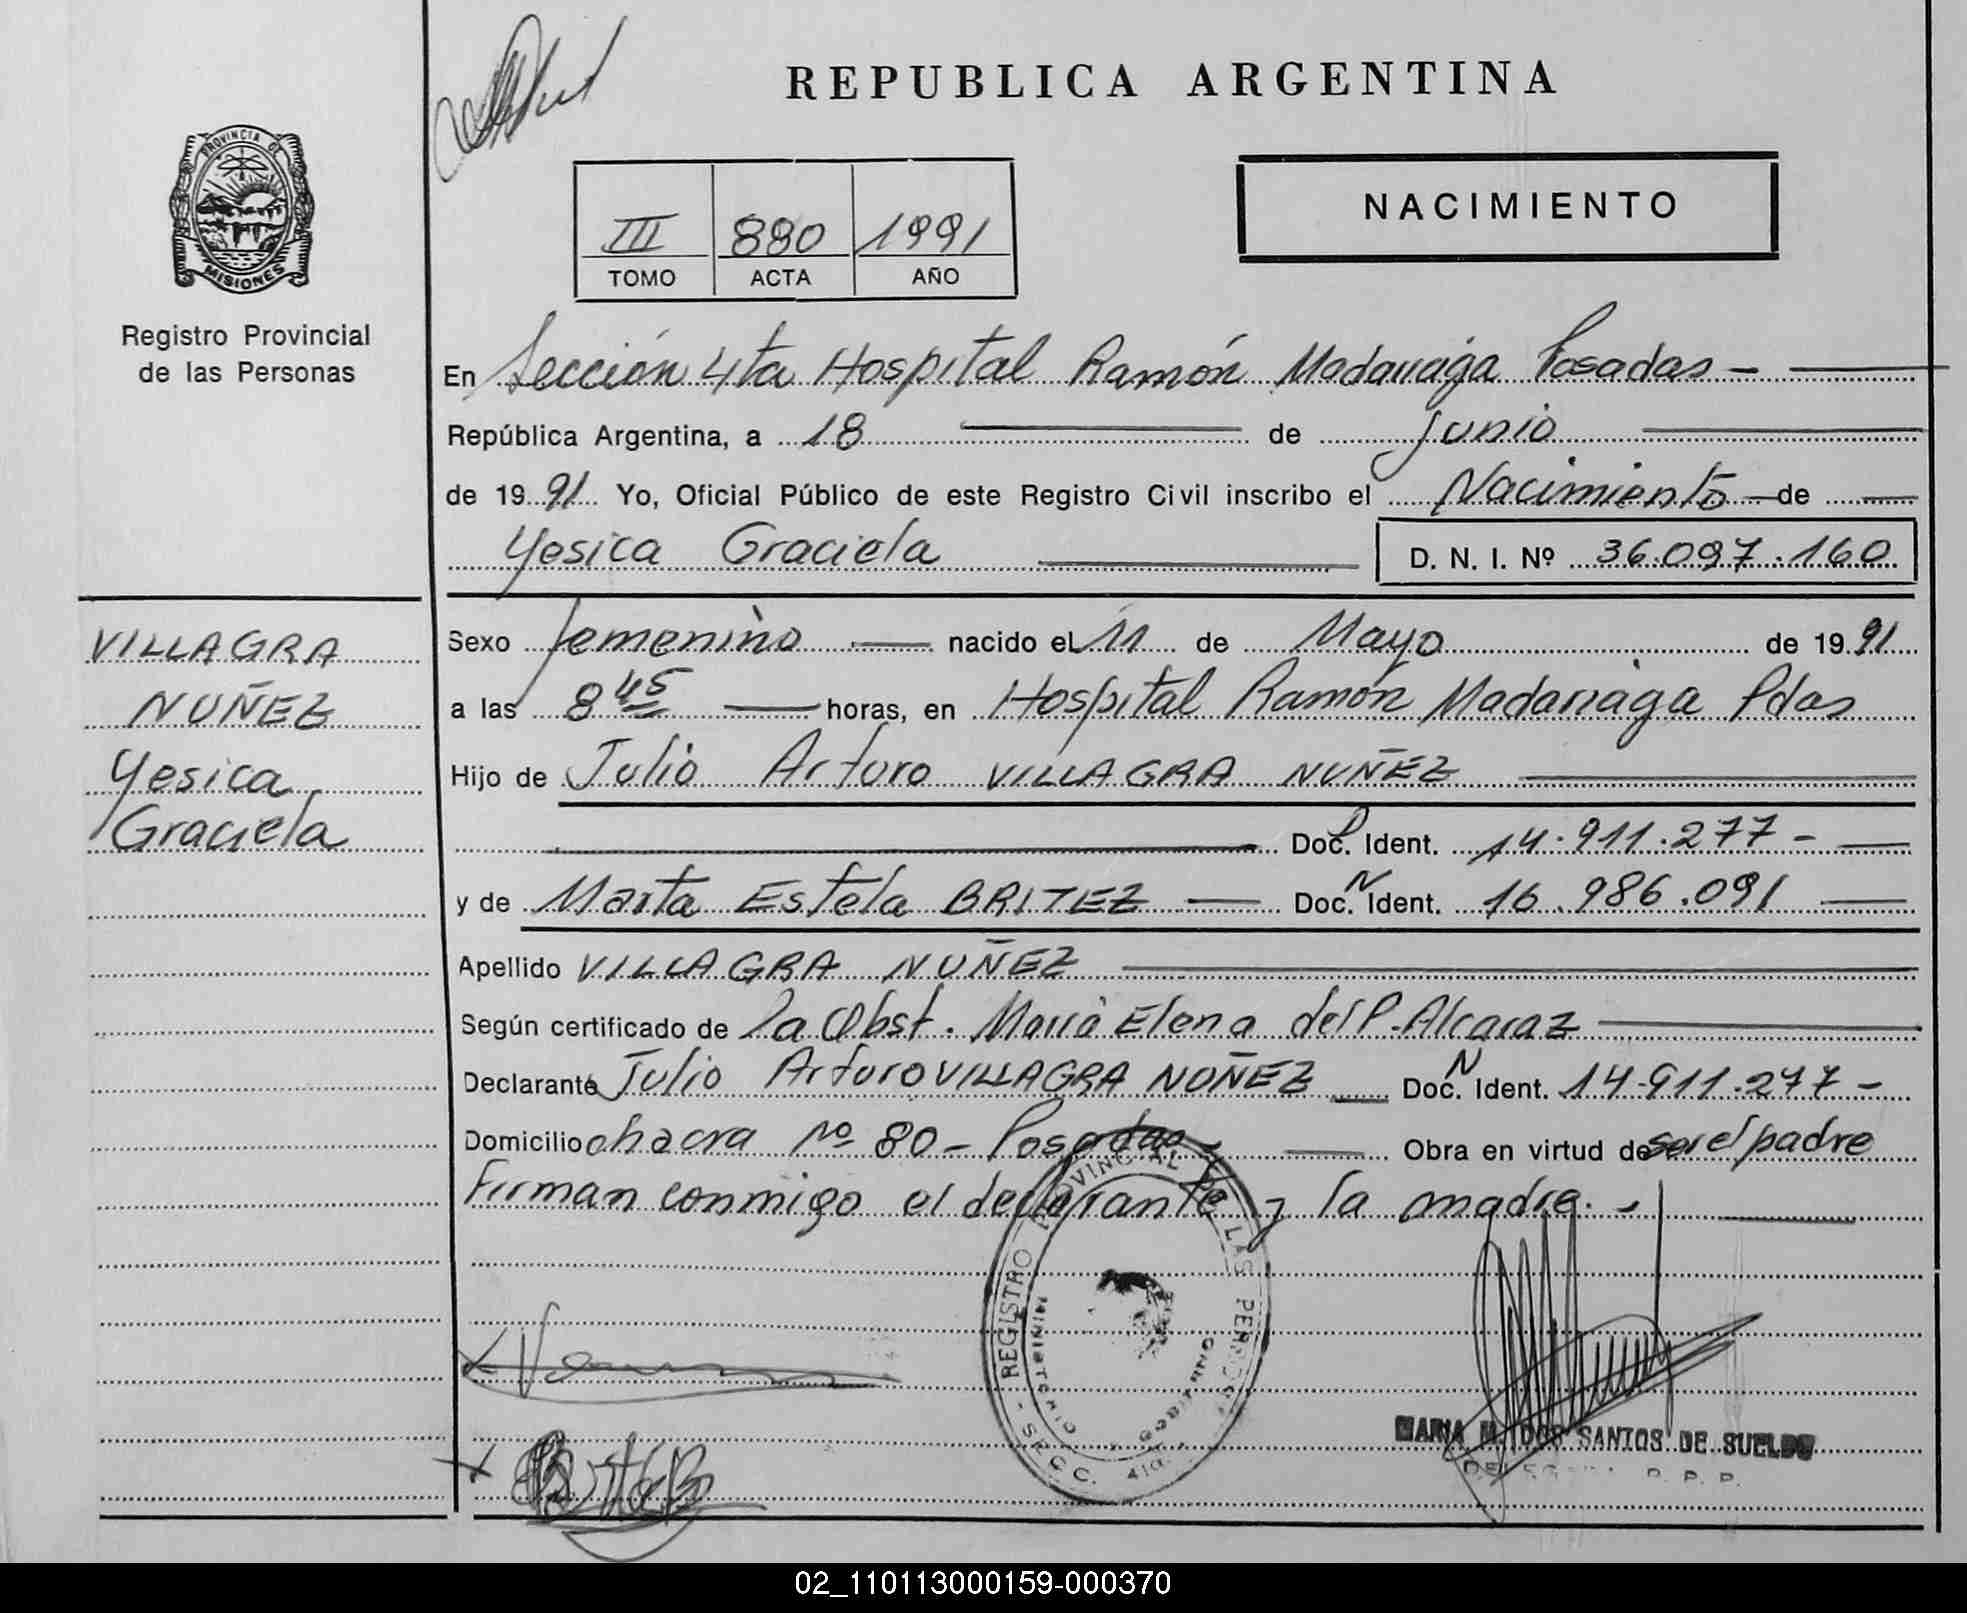 REPUBLICA ARGENTINA
PROVINCIA DE
MISIONES
Registro Provincial
de las Personas
III 880 1991
TOMO ACTA AÑO
NACIMIENTO
En Sección 4ta Hospital Ramón Madariaga Posadas -
República Argentina, a 18 de junio
de 1991 Yo, Oficial Público de este Registro Civil inscribo el Nacimiento de
Yesica Graciela D. N. I. Nº 36.097.160
VILLAGRA
NUÑEZ
Yesica
Graciela
Sexo femenino nacido el 11 de Mayo de 1991
a las 8 45 horas, en Hospital Ramón Madariaga Pdas
Hijo de Julio Arturo VILLAGRA NUÑEZ
Doc. Ident. 14.911.277 -
y de Marta Estela BRITEZ Doc. N Ident. 16.986.091
Apellido VILLAGRA NUÑEZ
Según certificado de la Obst. María Elena del P. Alcaraz
Declarante Julio Arturo VILLAGRA NUÑEZ Doc. N Ident. 14.911.277 -
Domicilio chacra Nº 80 - Posadas - Obra en virtud de ser el padre
Firman conmigo el declarante y la madre. -
REGISTRO PROVINCIAL DE LAS PERSONAS - SECC. 4ta.
MINISTERIO GOBIERNO
MARIA M. DOS SANTOS DE SUELDO
R. P. P.
02_110113000159-000370